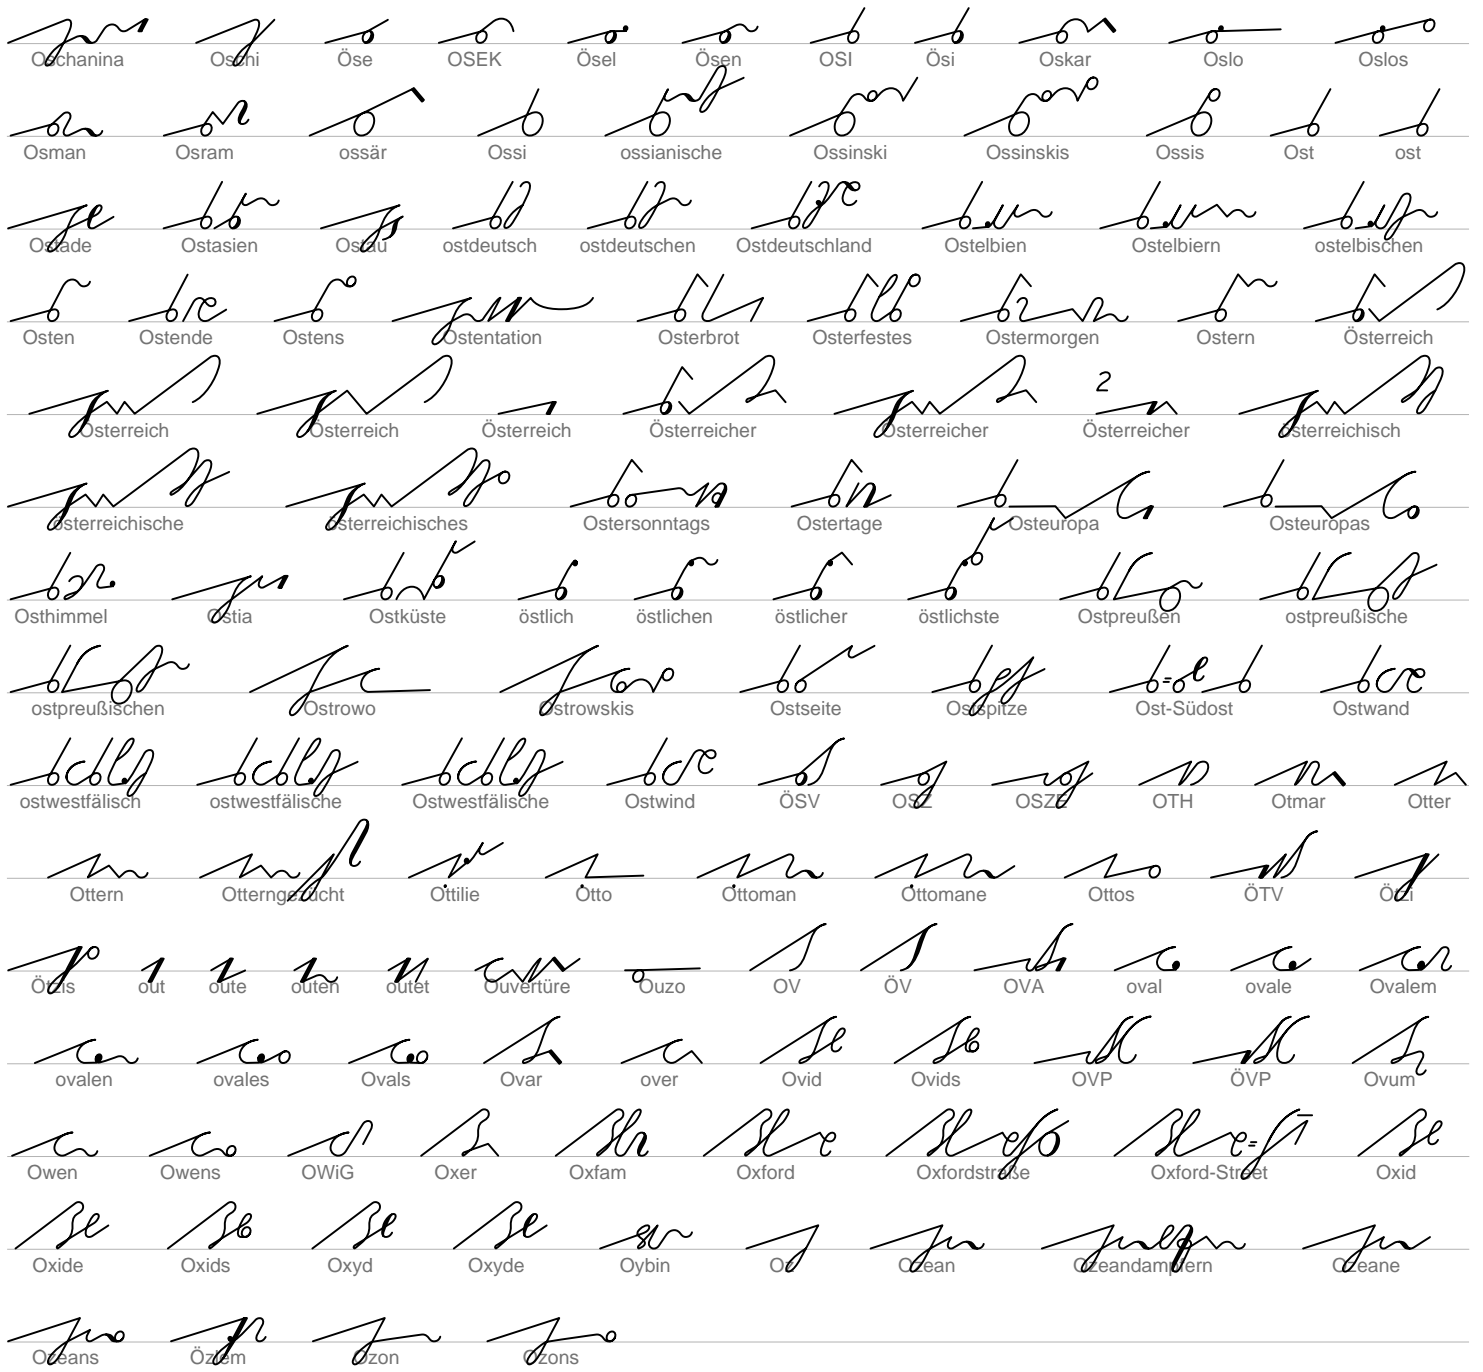 Oschanina Oschi Öse OSEK Ösel Ösen OSI Ösi Oskar Oslo Oslos
Osman Osram ossär Ossi ossianische Ossinski Ossinskis Ossis Ost ost
Ostade Ostasien Ostau ostdeutsch ostdeutschen Ostdeutschland Ostelbien Ostelbiern ostelbischen
Osten Ostende Ostens Ostentation Osterbrot Osterfestes Ostermorgen Ostern Österreich
Österreich Österreich Österreich Österreicher Österreicher 2 Österreicher österreichisch
österreichische österreichisches Ostersonntags Ostertage Osteuropa Osteuropas
Osthimmel Ostia Ostküste östlich östlichen östlicher östlichste Ostpreußen ostpreußische
ostpreußischen Ostrowo Ostrowskis Ostseite Ostspitze Ost-Südost Ostwand
ostwestfälisch ostwestfälische Ostwestfälische Ostwind ÖSV OSZ OSZE OTH Otmar Otter
Ottern Otterngezücht Ottilie Otto Ottoman Ottomane Ottos ÖTV Ötzi
Ötzis out oute outen outet Ouvertüre Ouzo OV ÖV OVA oval ovale Ovalem
ovalen ovales Ovals Ovar over Ovid Ovids OVP ÖVP Ovum
Owen Owens OWiG Oxer Oxfam Oxford Oxfordstraße Oxford-Street Oxid
Oxide Oxids Oxyd Oxyde Oybin Oz Ozean Ozeandampfern Ozeane
Ozeans Özlem Ozon Ozons